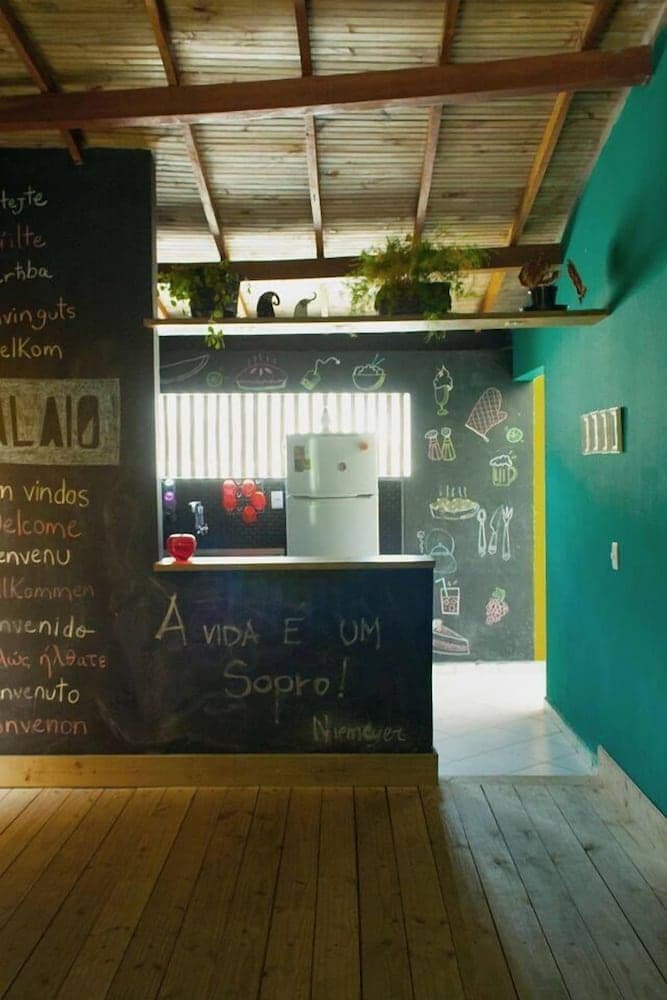 tejte
ilte
ertha
nvinguts
elkom
ALAIO
m vindos
Welcome
envenu
llkommen
nvenido
λώς ήλθατε
nvenuto
onvenon
A VIDA É UM
Sopro!
Niemeyer